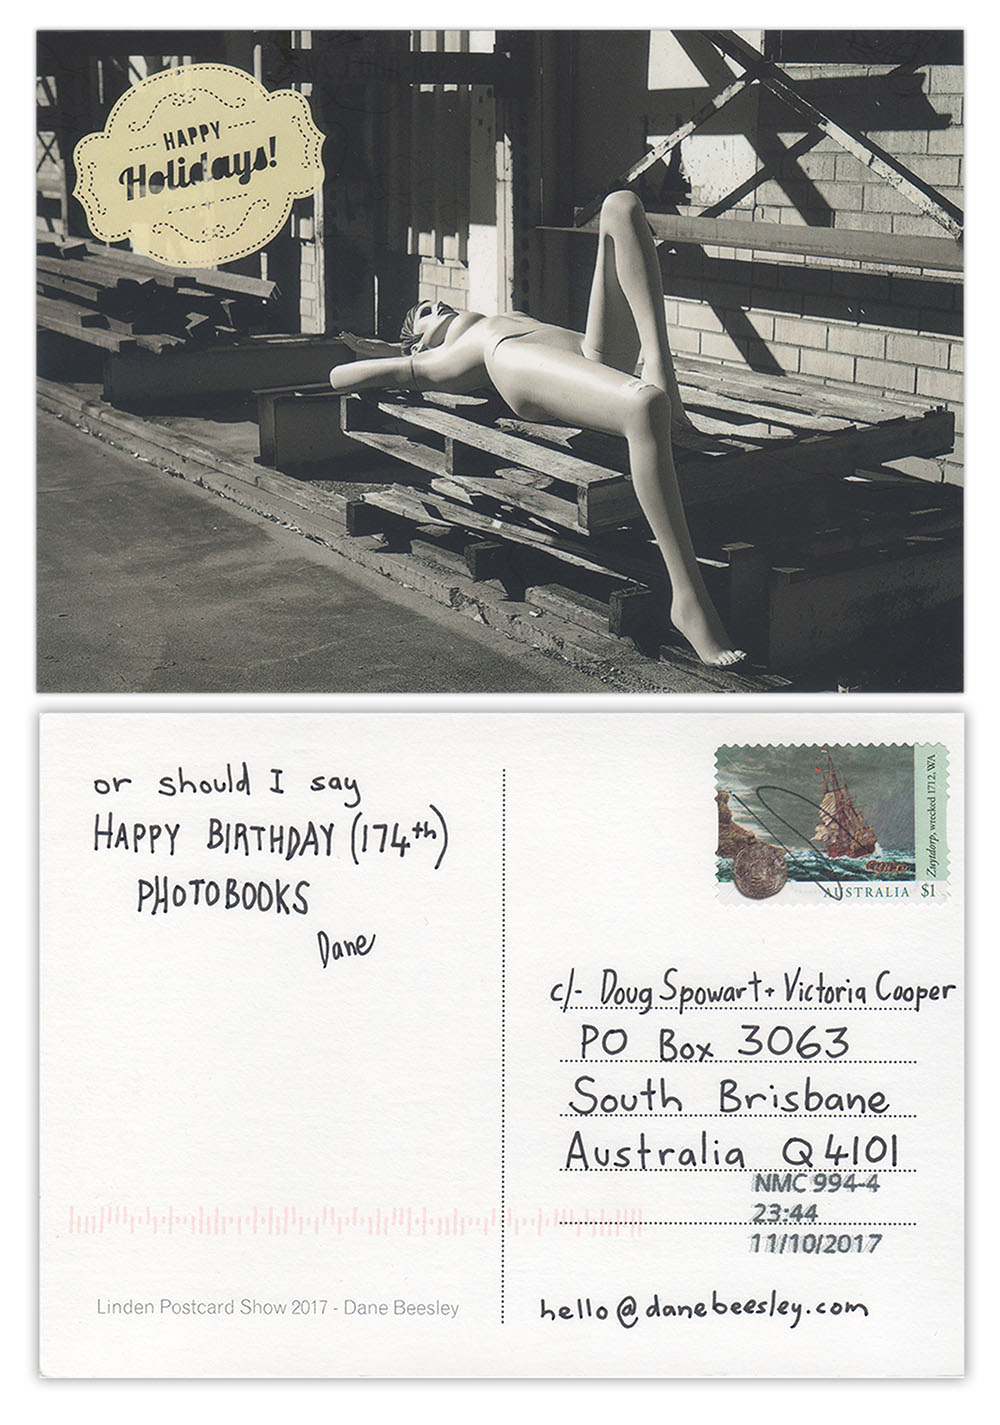 HAPPY
Holidays!
or should I say
HAPPY BIRTHDAY (174th)
PHOTOBOOKS
Dane
Zuytdorp, wrecked 1712, WA
AUSTRALIA $1
c/- Doug Spowart + Victoria Cooper
PO Box 3063
South Brisbane
Australia Q4101
NMC 994-4
23:44
11/10/2017
Linden Postcard Show 2017 - Dane Beesley
hello@danebeesley.com